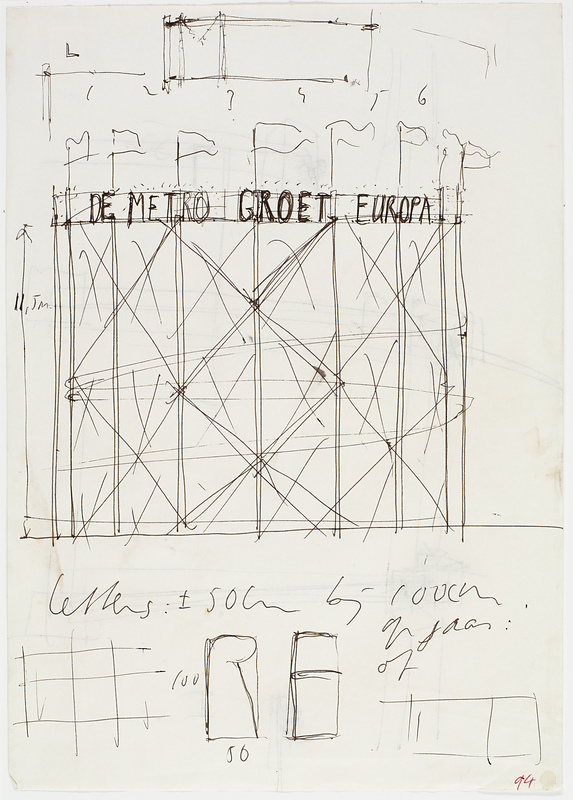 1 2 3 4 5 6
DE METRO GROET EUROPA
11,5m
letters: ± 50cm bij 100cm
op gaas:
of
100
50
94